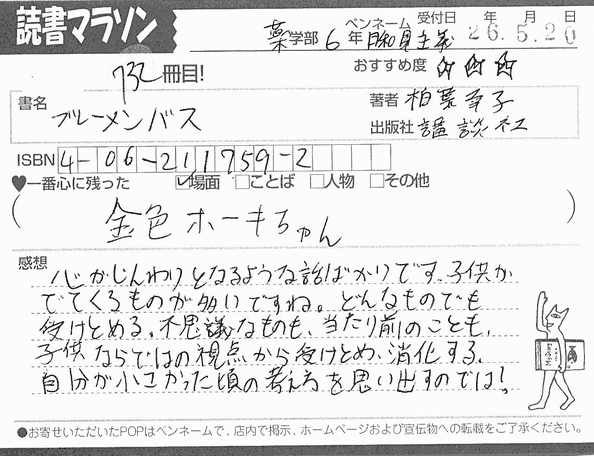 読書マラソン
ペンネーム 受付日 年 月 日
薬学部 6年 日和見主義 26.5.20
732冊目!
おすすめ度 ☆☆☆
書名 ブレーメンバス
著者 柏葉幸子
出版社 講談社
ISBN 4-06-211759-2
♥一番心に残った ☑場面 □ことば □人物 □その他
(金色ホーキちゃん)
感想
心がじんわりとなるような話ばかりです。子供が
でてくるものが多いですね。どんなものでも
受けとめる。不思議なものも、当たり前のことも、
子供ならではの視点から受けとめ、消化する。
自分が小さかった頃の考え方を思い出すのでは!
●お寄せいただいたPOPはペンネームで、店内で掲示、ホームページおよび宣伝物への転載をご了承ください。